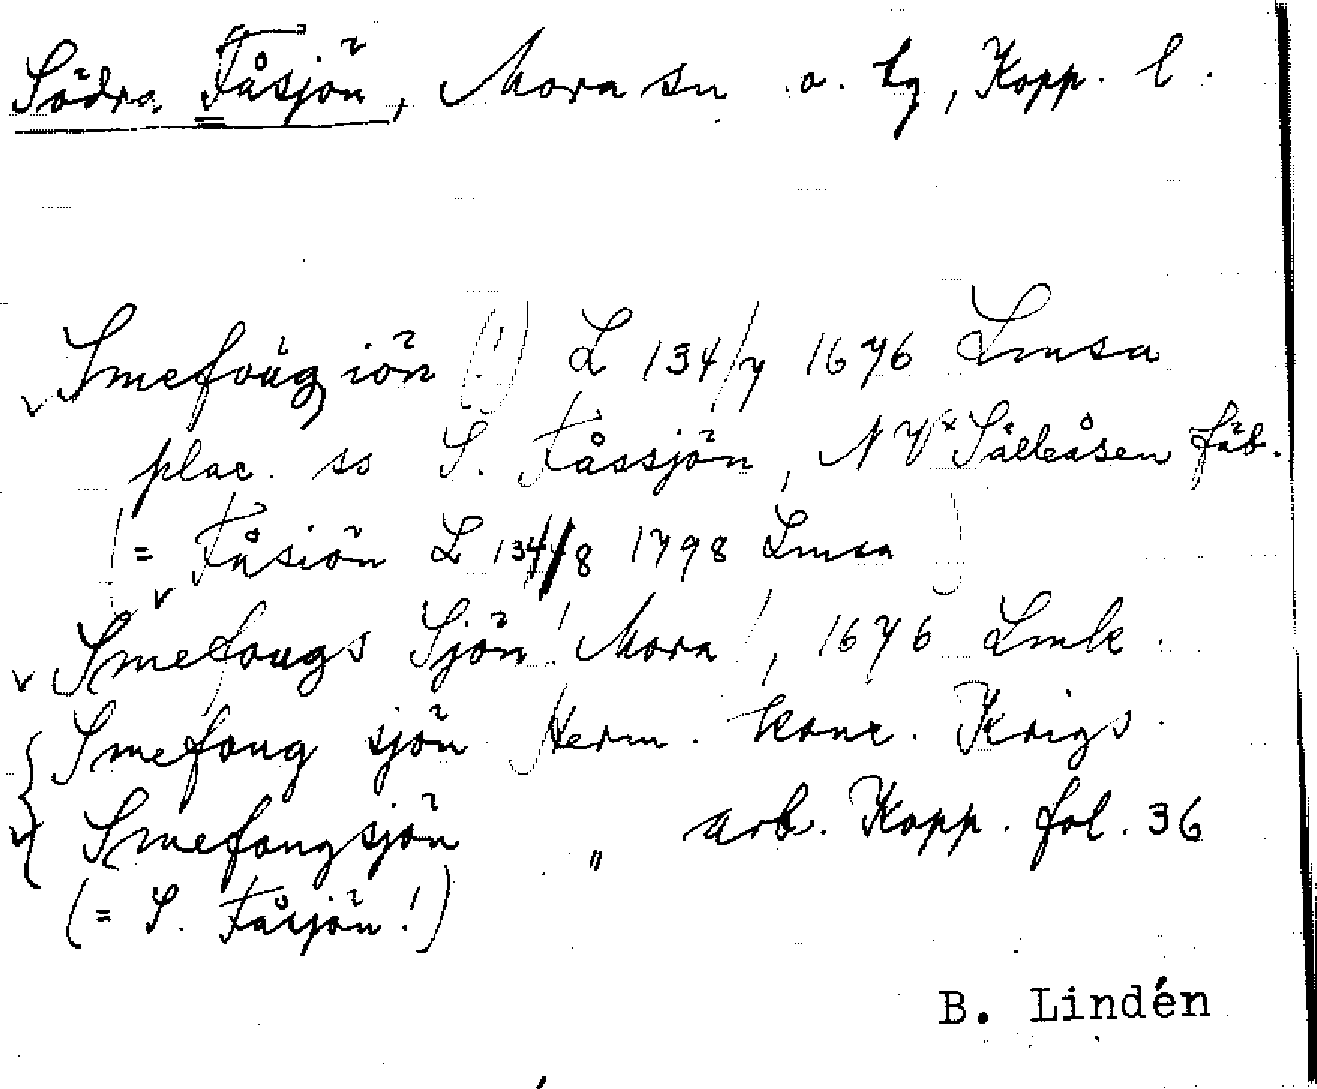 Södra Fåsjön, Mora sn o. tg, Kopp. l.
Smefougiön (!) L 134/7 1676 Lmsa
plac. ss S. Fåssjön, NV Sälleåsen fäb.
(= Fåsiön L 134/8 1798 Lmsa)
Smefougs Sjön! Mora!, 1676 Lmk.
Smefoug sjön Herm. konc. Krigs
Smefougsjön " arb. Kopp. fol. 36
(= S. Fåsjön!)
B. Lindén